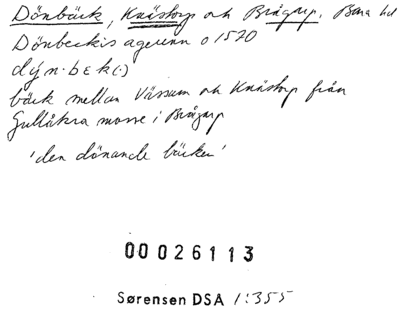 Dönbäck, Knästorp och Brågarp, Bara hd
Dönbeckis agerenn o 1570
dýn·bɛk(·)
bäck mellan Vässum och Knästorp från
Gullåkra mosse i Brågarp
'den dönande bäcken'
00026113
Sørensen DSA 1:355